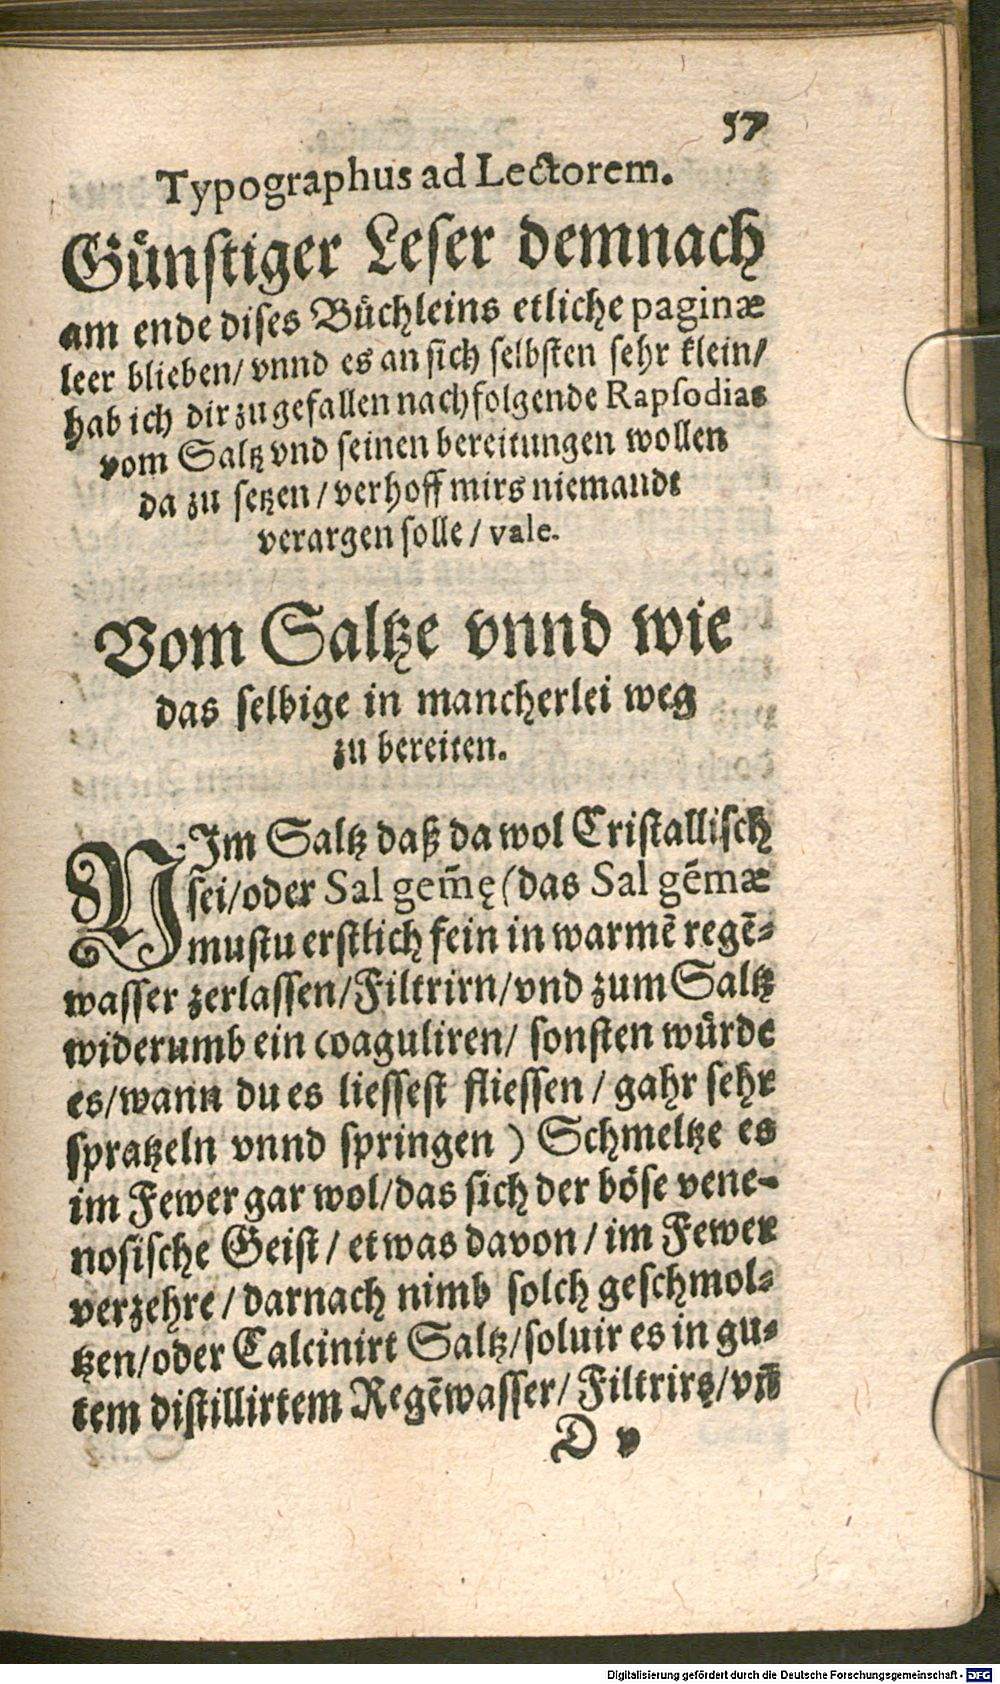 57
Typographus ad Lectorem.
Guͤnſtiger Leſer demnach
am ende diſes Buͤchleins etliche paginæ
leer blieben/ vnnd es an ſich ſelbſten ſehr klein/
hab ich dir zu gefallen nachfolgende Rapſodias
vom Saltz vnd ſeinen bereitungen wollen
da zu ſetzen / verhoff mirs niemandt
verargen ſolle / vale.
Vom Saltze vnnd wie
das ſelbige in mancherlei weg
zu bereiten.
NIm Saltz daß da wol Criſtalliſch
ſei/oder Sal gem̃ę (das Sal gẽmæ
muſtu erſtlich fein in warmẽ regẽ-
waſſer zerlaſſen/Filtrirn/vnd zum Saltz
widerumb ein coaguliren/ ſonſten wuͤrde
es/wann du es lieſſeſt flieſſen / gahr ſehr
ſpratzeln vnnd ſpringen ) Schmeltze es
im Fewer gar wol/das ſich der boͤſe vene-
noſiſche Geiſt / etwas davon / im Fewer
verzehre / darnach nimb ſolch geſchmol-
tzen/oder Calcinirt Saltz/ſoluir es in gu-
tem diſtillirtem Regẽwaſſer/ Filtrirs/vñ
D v
Digitalisierung gefördert durch die Deutsche Forschungsgemeinschaft - DFG